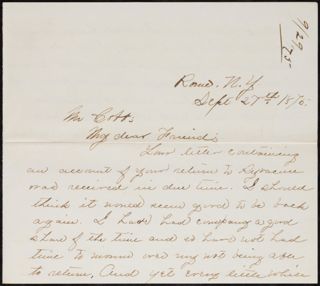 9/29 75
Rome. N.Y.
Sept 27th 1876.
Mr Cobb.
My dear Friend;
Your letter containing
an account of your return to Syracuse
was received in due time. I should
think it would seem good to be back
again. I have had company a good
share of the time and so have not had
time to mourn over my not being able
to return. And yet every little while